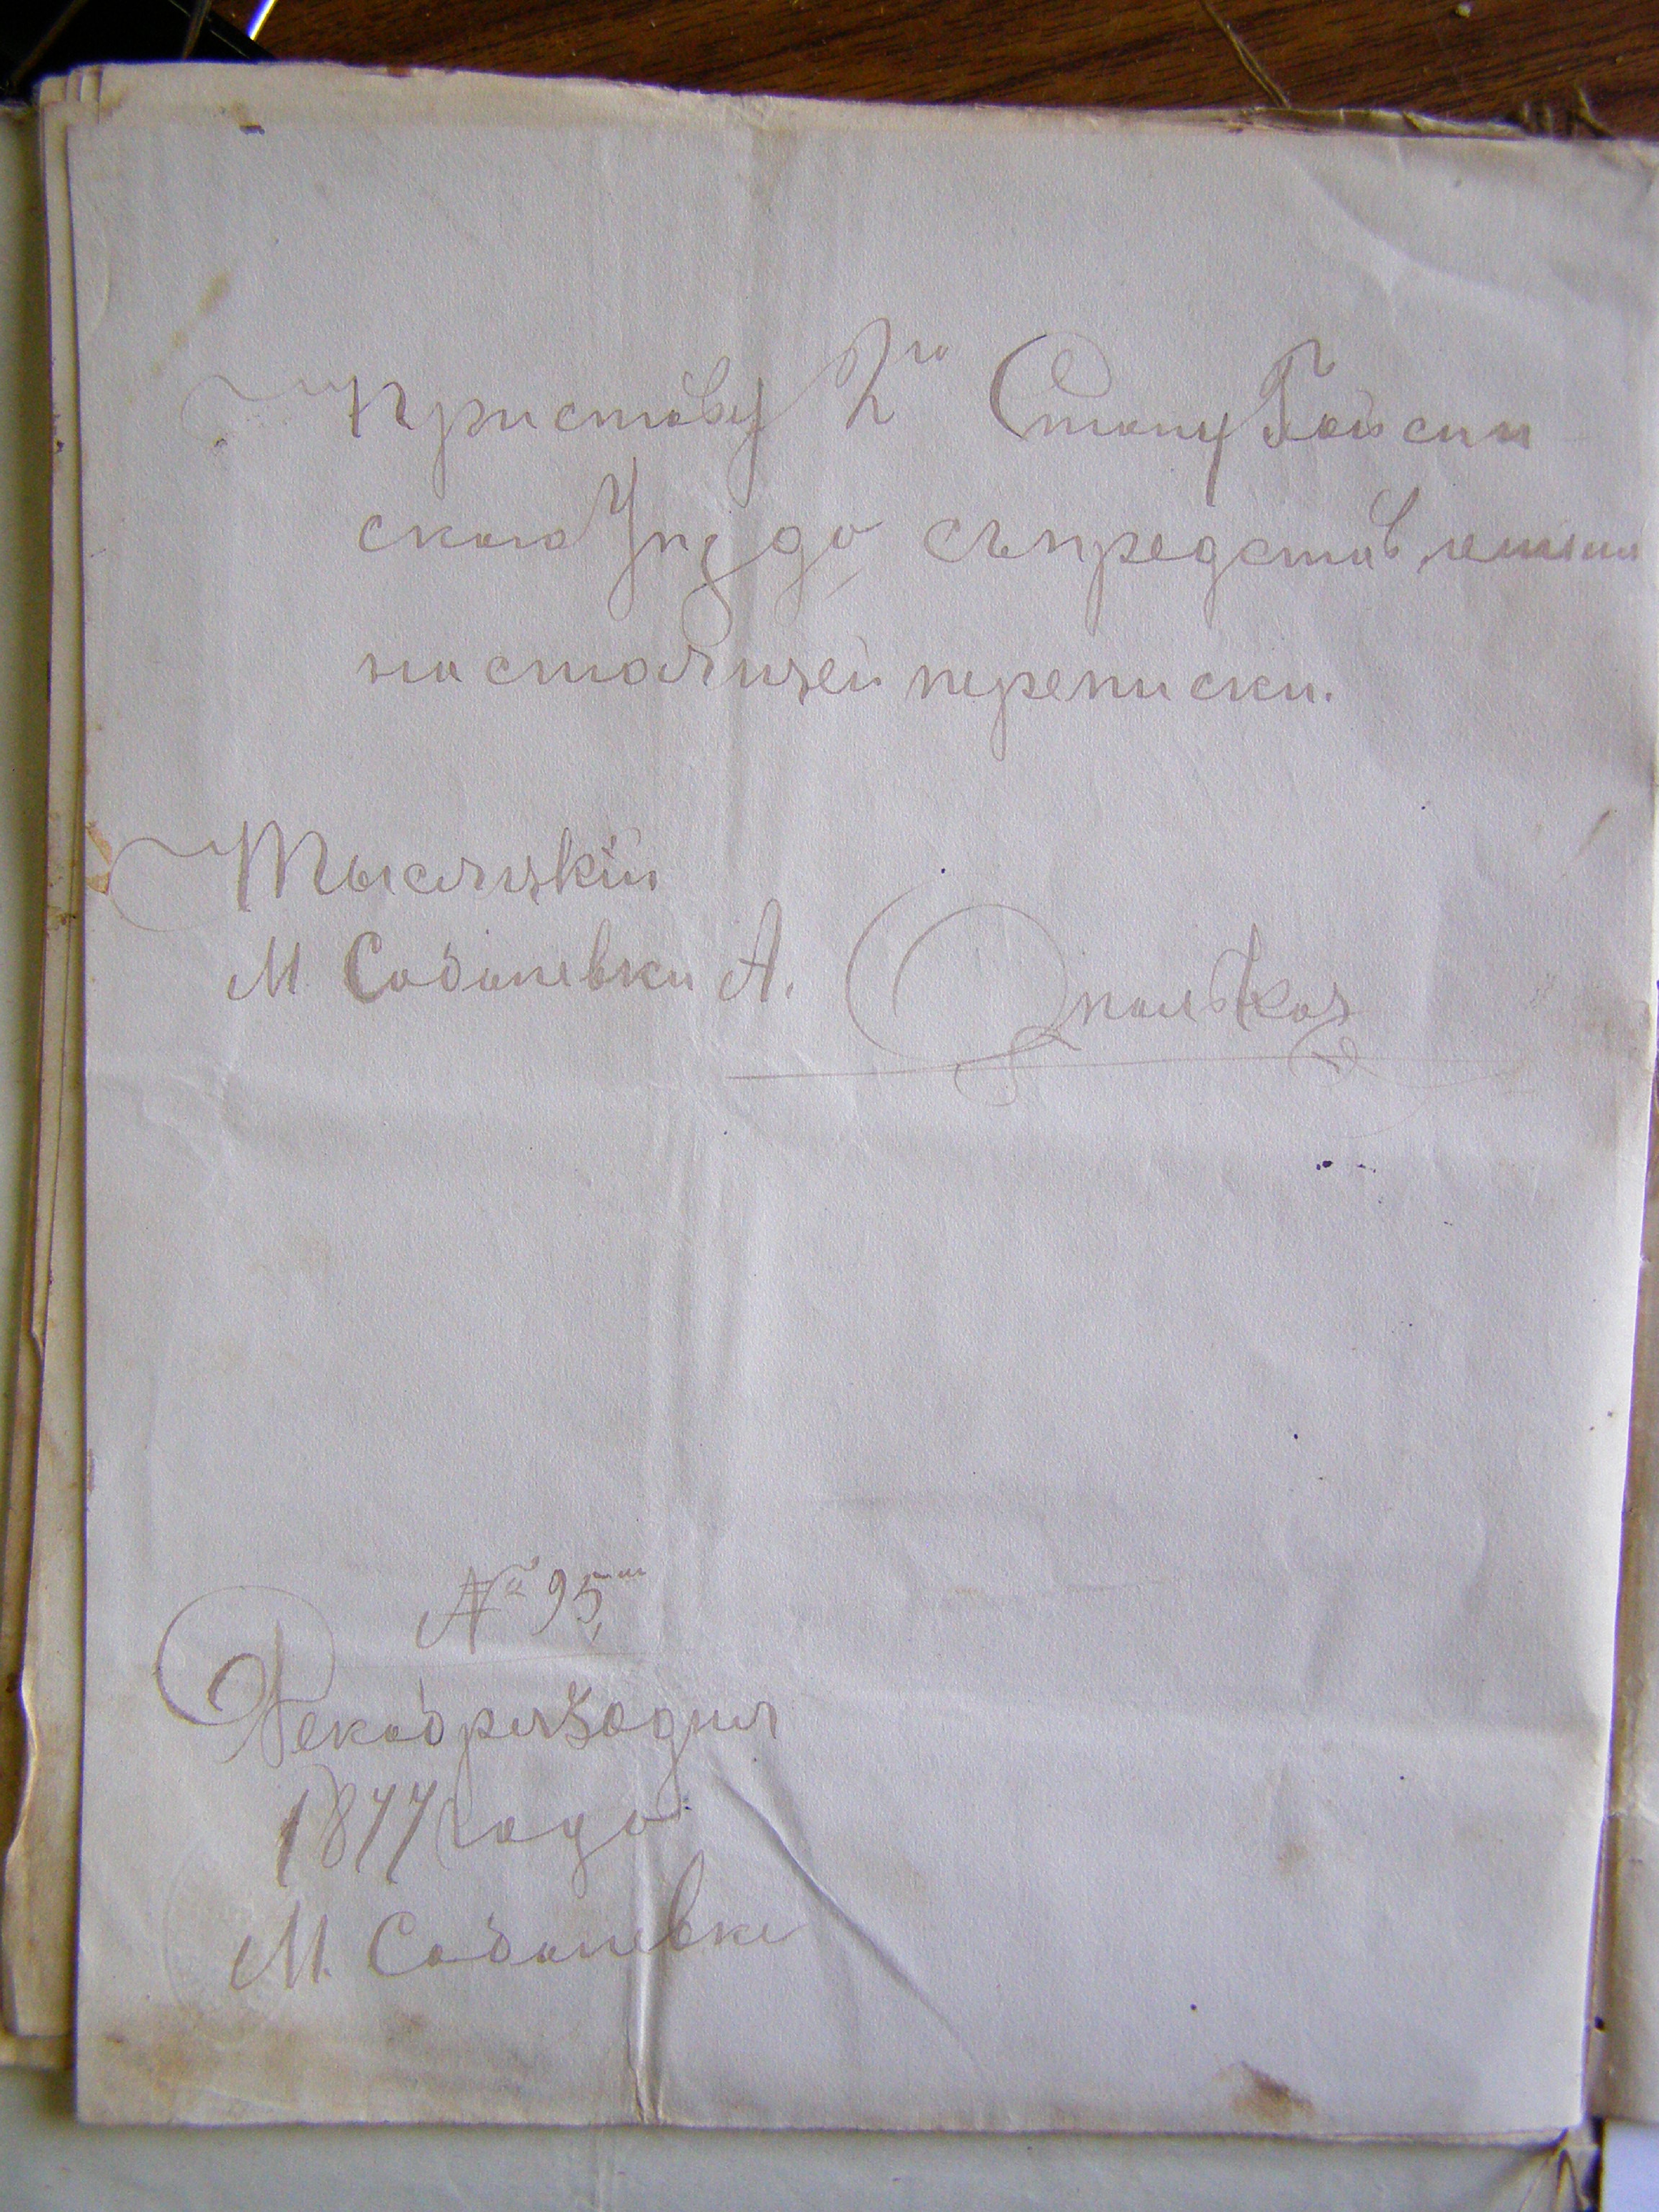 Приставу 2го Стану Гайсин
ского Уезда съ представлениемъ
настоящей переписки.
Тысяцкій
М Собалевки А.
№ 95
Декабря 30 дня
1877 года
М. Собалевке